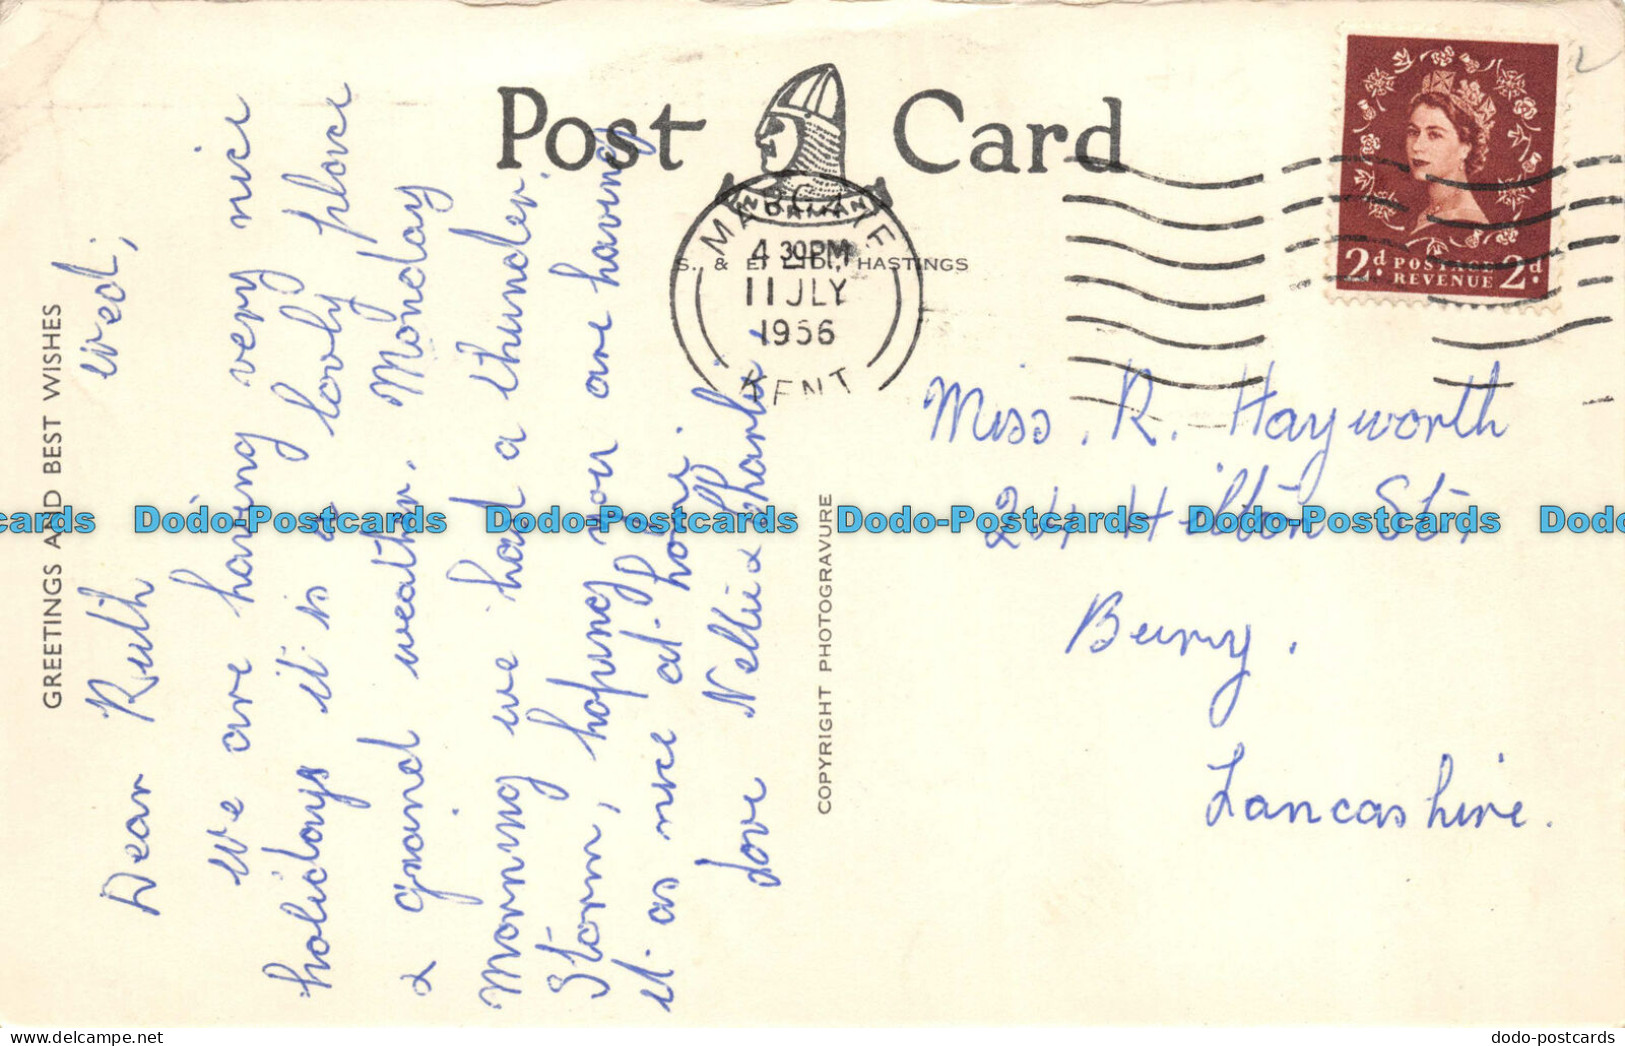 Post Card
NORMAN
S. & E. LTD., HASTINGS
MARGATE
4 30PM
11 JLY
1956
KENT
2d. POSTAGE 2d.
REVENUE
GREETINGS AND BEST WISHES
Wed;
Dear Ruth
We are having very nice
holidays it is a lovly place
& graind weather. Monday
Morning we had a thunder
Storm, hoping you are having
it as nice at home.
love Nellie & Charlie.
COPYRIGHT PHOTOGRAVURE
Miss. R. Hayworth
24 Hilton St,
Bury.
Lancashire.
cards Dodo-Postcards Dodo-Postcards Dodo-Postcards Dodo-Postcards Dodo
dodo-postcards